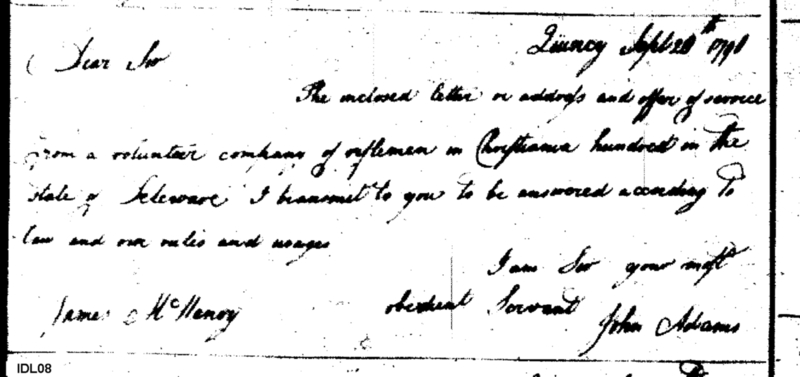 Quincy Sept 20th 1798
Dear Sir
The inclosed letter or address and offer of service
from a volunteer company of riflemen in Christiania hundred in the
state of Deleware I transmit to you to be answered according to
law and our rules and usages
I am Sir your most
obedient Servant
James McHenry
John Adams
IDL08